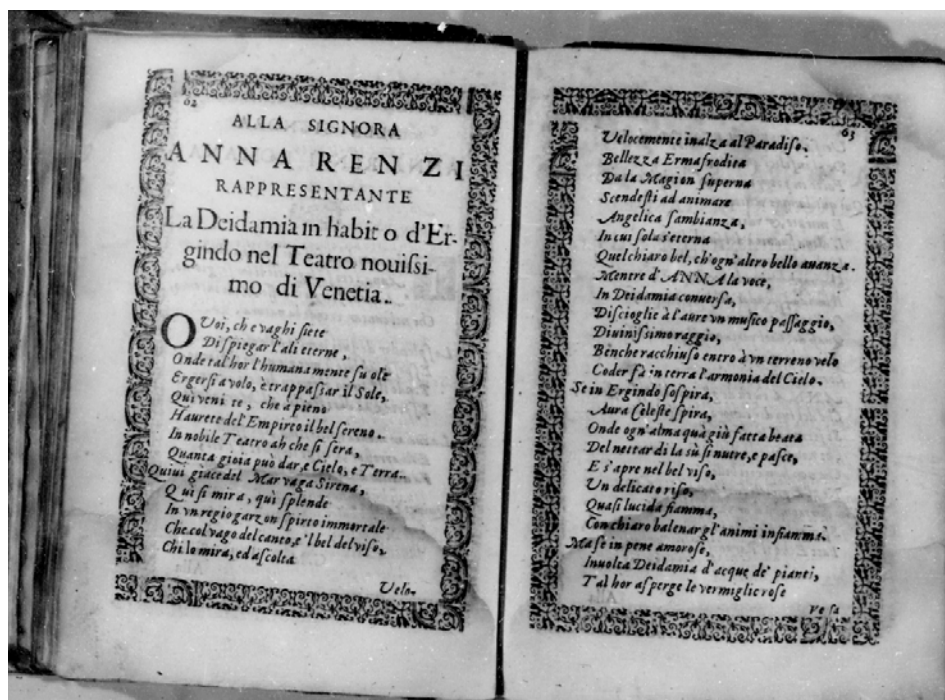 62
ALLA SIGNORA
ANNA RENZI
RAPPRESENTANTE
La Deidamia in habito d'Er-
gindo nel Teatro nouiſsi-
mo di Venetia.
O Voi, che vaghi ſiete
Di ſpiegar l'ali eterne,
Onde tal'hor l'humana mente ſuole
Ergerſi a volo, e trappaſſar il Sole,
Qui venite, che a pieno
Haurete del'Empireo il bel ſereno.
In nobile Teatro ah che ſi ſera,
Quanta gioia può dar, e Cielo, e Terra.
Quiui giace del Mar vaga Sirena,
Qui ſi mira, quì ſplende
In vn regio garzon ſpirto immortale
Che col vago del canto, e'l bel del viſo,
Chi lo mira, ed aſcolta
Velo-
63
Velocemente inalza al Paradiſo.
Bellezza Ermafrodita
Da la Magion ſuperna
Scendeſti ad animare
Angelica ſambianza,
In cui ſola s'eterna
Quel chiaro bel, ch'ogn'altro bello auanza.
Mentre d'ANNA la voce,
In Deidamia conuerſa,
Diſcioglie à l'aure vn muſico paſſaggio,
Diuiniſsimo raggio,
Benche racchiuſo entro à vn terreno velo
Coder fà in terra l'armonia del Cielo.
Se in Ergindo ſoſpira,
Aura Celeſte ſpira,
Onde ogn'alma quà giù fatta beata
Del nettar di la sù ſi nutre, e paſce,
E s'apre nel bel viſo,
Un delicato riſo,
Quaſi lucida fiamma,
Con chiaro balenar gl'animi infiamma.
Ma ſe in pene amoroſe,
Inuolta Deidamia d'acque de' pianti,
Tal hor aſperge le vermiglie roſe
Ve ſa